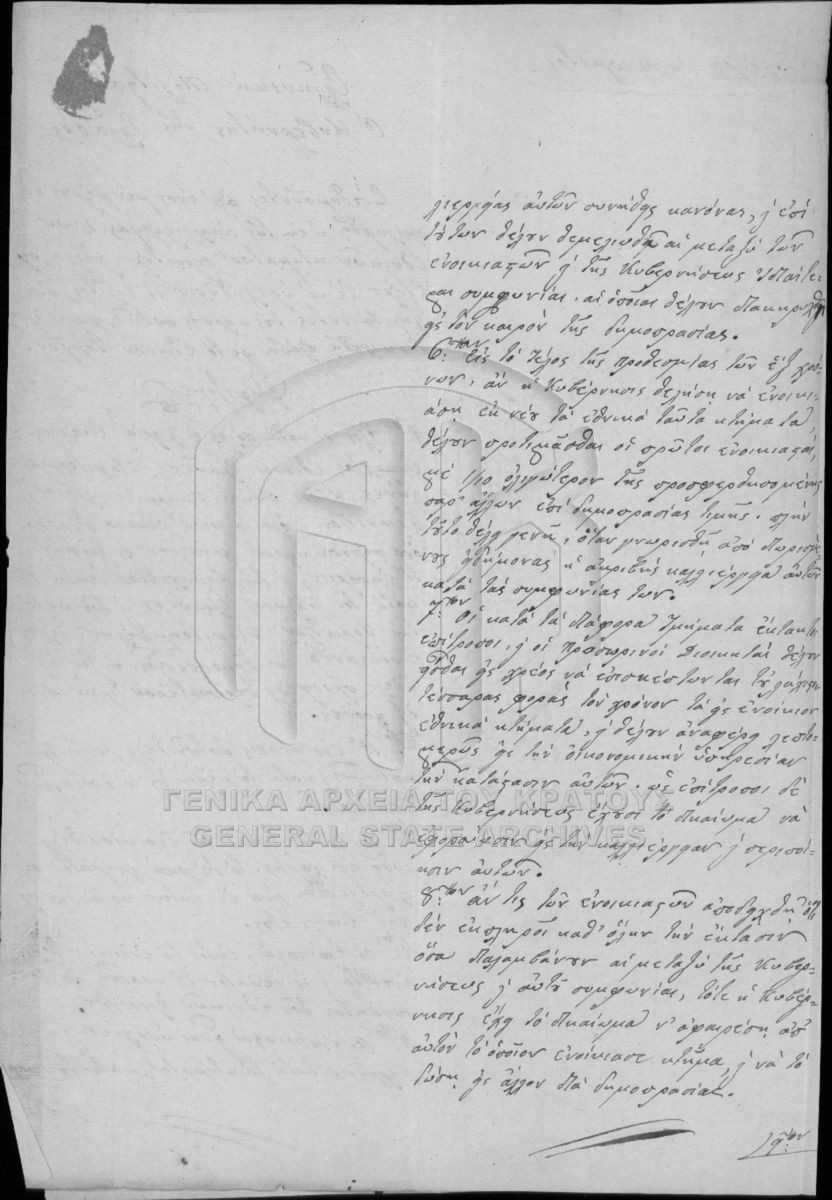 λιεργίας αὐτῶν συνήθης κανόνας, ἢ ἐπὶ
τούτων θέλουν θεμελιωθῆ αἱ μεταξὺ τῶν
ἐνοικιαστῶν ἢ τῆς Κυβερνήσεως ἰδιαίτε-
ραι συμφωνίαι. αἱ ὁποῖαι θέλουν διακηρυχθῆ
εἰς τὸν καιρὸν τῆς δημοπρασίας.
6:τον Εἰς τὸ τέλος τῆς προθεσμίας τῶν ἓξ χρό-
νων, ἂν ἡ Κυβέρνησις θελήσῃ νὰ ἐνοικι-
άσῃ ἐκ νέου τὰ ἐθνικὰ ταῦτα κτήματα,
θέλουν προτιμᾶσθαι οἱ πρῶτοι ἐνοικιασταί,
μὲ 1/10 ὀλιγώτερον τῆς προσφερθησομένης
παρ' ἄλλων ἐπὶ δημοπρασίας τιμῆς. πλὴν
τοῦτο θέλει γενῆ, ὅταν γνωρισθῇ ἀπὸ διωρισμέ-
νους εἰδήμονας ἡ ἀκριβὴς καλλιέργεια αὐτῶν
κατὰ τὰς συμφωνίας των.
7:τον Οἱ κατὰ τὰ διάφορα τμήματα ἔκτακτοι
ἐπίτροποι, ἢ οἱ προσωρινοὶ Διοικηταὶ θέλουν
εἶσθαι εἰς χρέος νὰ ἐπισκέπτωνται τοὐλάχιστον
τέσσαρας φορὰς τὸν χρόνον τὰ εἰς ἐνοίκιον
ἐθνικὰ κτήματα, ἢ θέλουν ἀναφέρῃ λεπτο-
μερῶς εἰς τὴν οἰκονομικὴν ὑπηρεσίαν
τὴν κατάστασιν αὐτῶν. ὡς ἐπίτροποι δὲ
τῆς Κυβερνήσεως ἔχουσι τὸ δικαίωμα νὰ
ἐφορῶσιν εἰς τὴν καλλιέργειαν ἢ περιποί-
ησιν αὐτῶν.
8:τον ἄν τις τῶν ἐνοικιαστῶν ἀποδειχθῇ ὅτι
δὲν ἐκπληροῖ καθ' ὅλην τὴν ἔκτασιν
ὅσα διαλαμβάνουν αἱ μεταξὺ τῆς Κυβερ-
νήσεως ἢ αὐτοῦ συμφωνίαι, τότε ἡ Κυβέρ-
νησις ἔχει τὸ δικαίωμα ν' ἀφαιρέσῃ ἀπ'
αὐτὸν τὸ ὁποῖον ἐνοίκιασε κτῆμα, ἢ νὰ τὸ
δώσῃ εἰς ἄλλον διὰ δημοπρασίας.
9:τον
ΓΕΝΙΚΑ ΑΡΧΕΙΑ ΤΟΥ ΚΡΑΤΟΥΣ
GENERAL STATE ARCHIVES